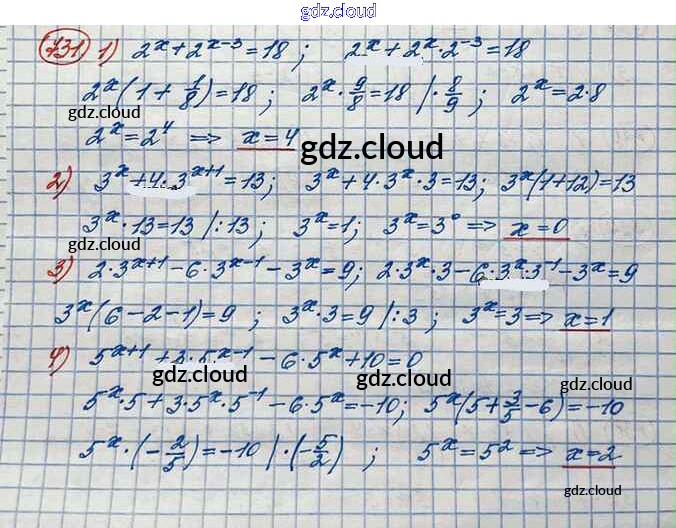 gdz.cloud
731 1) 2^x + 2^{x-3} = 18 ; 2^x + 2^x · 2^{-3} = 18
2^x (1 + 1/8) = 18 ; 2^x · 9/8 = 18 | · 8/9 ; 2^x = 2·8
gdz.cloud gdz.cloud
2^x = 2^4 => x = 4
gdz.cloud
2) 3^x + 4·3^{x+1} = 13 ; 3^x + 4·3^x·3 = 13 ; 3^x (1+12) = 13
3^x · 13 = 13 | :13 ; 3^x = 1 ; 3^x = 3^0 => x = 0
gdz.cloud gdz.cloud
3) 2·3^{x+1} - 6·3^{x-1} - 3^x = 9 ; 2·3^x·3 - 6·3^x·3^{-1} - 3^x = 9
3^x (6 - 2 - 1) = 9 ; 3^x · 3 = 9 | :3 ; 3^x = 3 => x = 1
4) 5^{x+1} + 3·5^{x-1} - 6·5^x + 10 = 0
gdz.cloud gdz.cloud gdz.cloud
5^x·5 + 3·5^x·5^{-1} - 6·5^x = -10 ; 5^x (5 + 3/5 - 6) = -10
5^x · (-2/5) = -10 | · (-5/2) ; 5^x = 5^2 => x = 2
gdz.cloud gdz.cloud